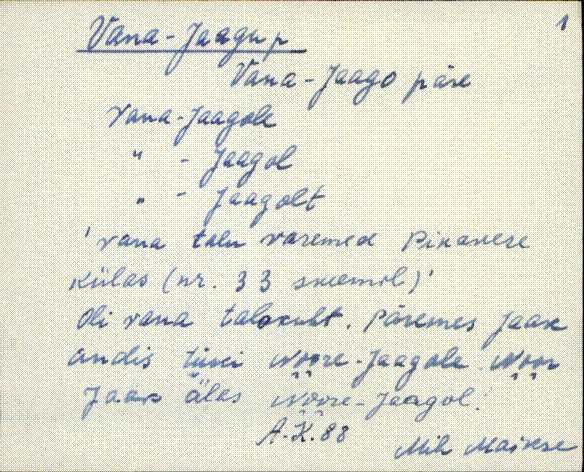 1
Vana-Jaagup
Vana-Jaago päre
Vana-Jaagole
" - Jaagol
" - Jaagolt
' vana talu varemed Pikavere
külas (nr. 33 skeemil)'
Oli vana talokoht. Päremes Jaak
andis tüki Noore-Jaagole. Noor
Jaak älas Noore-Jaagol.
A.K. 88